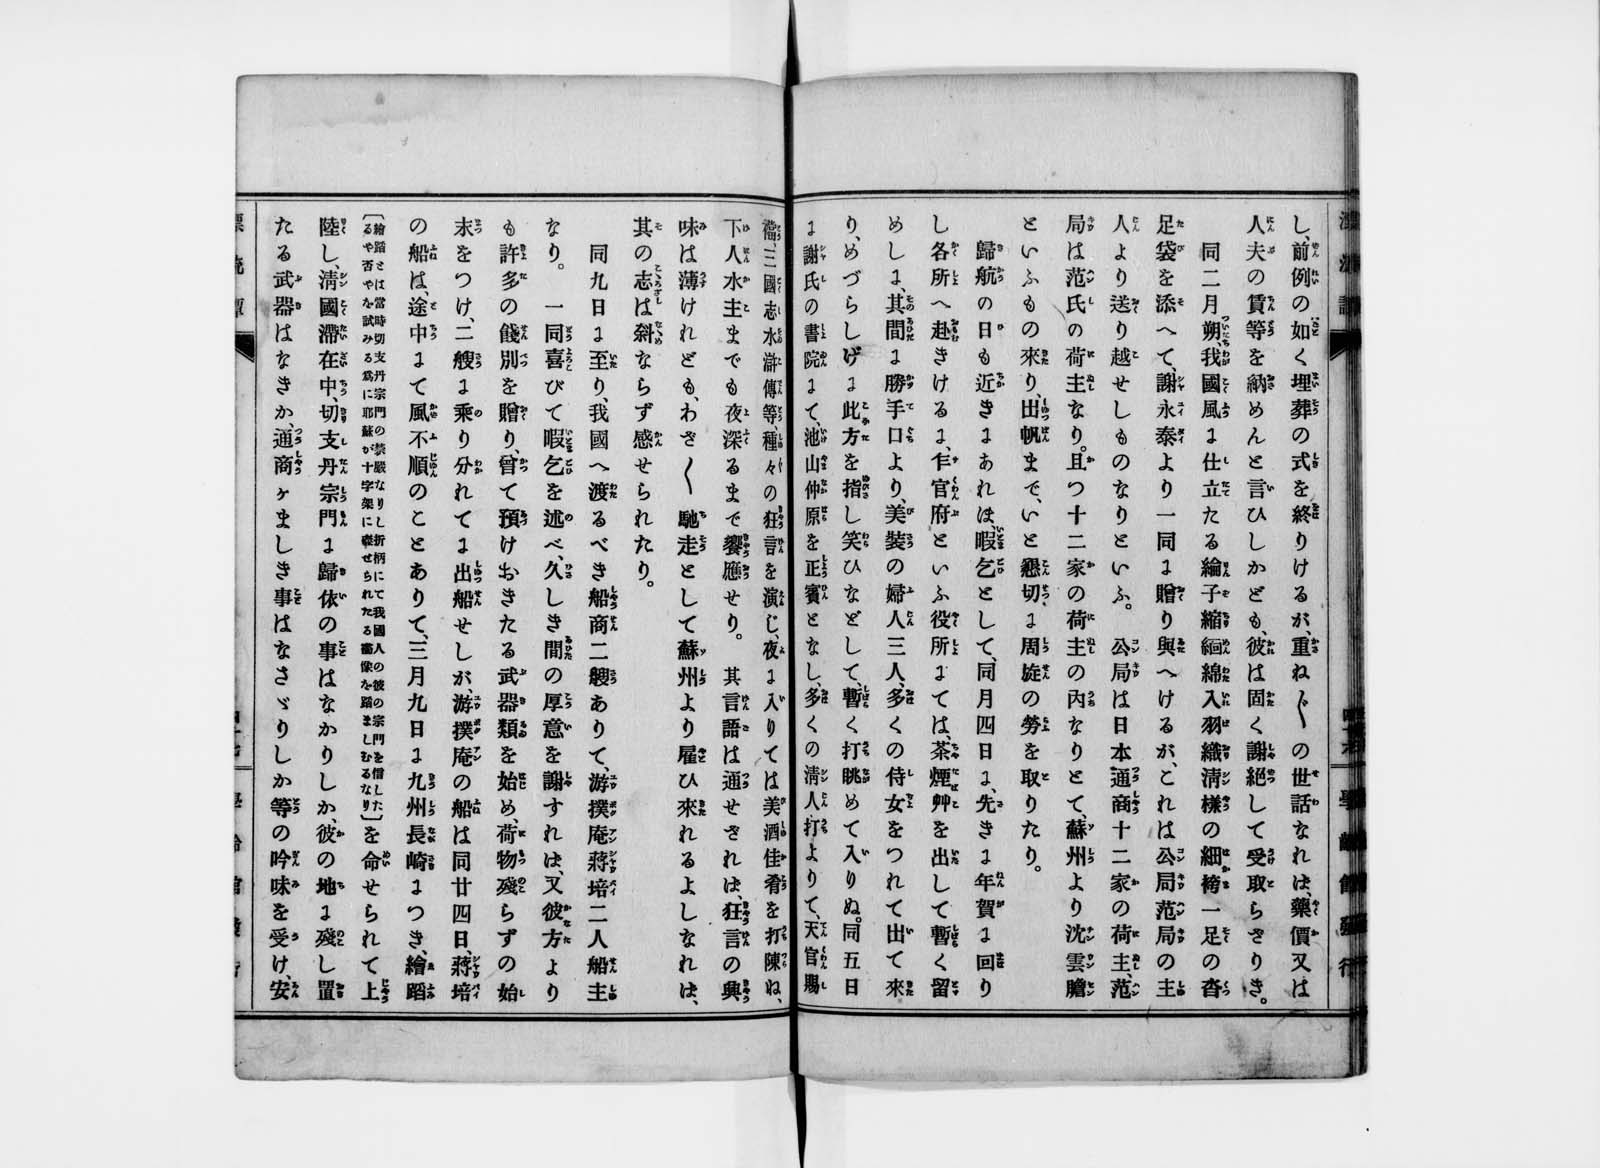 し、前例の如く埋葬の式を終りけるが、重ね〲の世話なれは、藥價又は
人夫の賃等を納めんと言ひしかども、彼は固く謝絕して受取らさりき。
同二月朔、我國風に仕立たる綸子縮緬綿入羽織淸樣の細袴一足の沓
足袋を添へて、謝永泰より一同に贈り與へけるが、これは公局范局の主
人より送り越せしものなりといふ。公局は日本通商十二家の荷主、范
局は范氏の荷主なり。且つ十二家の荷主の內なりとて、蘇州より沈雲膽
といふもの來り、出帆まで、いと懇切に周旋の勞を取りたり。
歸航の日も近きにあれは、暇乞として、同月四日に、先きに年賀に回り
し各所へ赴きけるに、乍官府といふ役所にては、茶煙艸を出して暫く留
めしに、其間に勝手口より、美裝の婦人三人、多くの侍女をつれて出て來
り、めづらしげに此方を指し笑ひなどして、暫く打眺めて入りぬ。同五日
に謝氏の書院にて、池山仲原を正賓となし、多くの淸人、打よりて、天官賜
福、三國志水滸傳等、種々の狂言を演じ、夜に入りては美酒佳肴を打陳ね、
下人水主までも夜深るまで饗應せり。其言語は通せされは、狂言の興
味は薄けれども、わざ〱馳走として蘇州より雇ひ來れるよしなれは、
其の志は斜ならず感せられたり。
同九日に至り、我國へ渡るべき船商二艘ありて、游撲庵蔣培二人船主
なり。一同喜びて暇乞を述べ、久しき間の厚意を謝すれは、又彼方より
も許多の餞別を贈り、曾て預けおきたる武器類を始め、荷物殘らずの始
末をつけ、二艘に乘り分れてに出船せしが、游撲庵の船は同廿四日、蔣培
の船は、途中にて風不順のことありて、三月九日に九州長崎につき、繪踏
〔繪踏とは當時切支丹宗門の禁嚴なりし折柄にて我國人の彼の宗門を信した
るや否やを試みる爲に耶蘇が十字架に磔せられたる畵像を踏ましむるなり〕を命せられて上
陸し、淸國滯在中、切支丹宗門に歸依の事はなかりしか、彼の地に殘し置
たる武器はなきか、通商ヶましき事はなさゞりしか等の吟味を受け、安